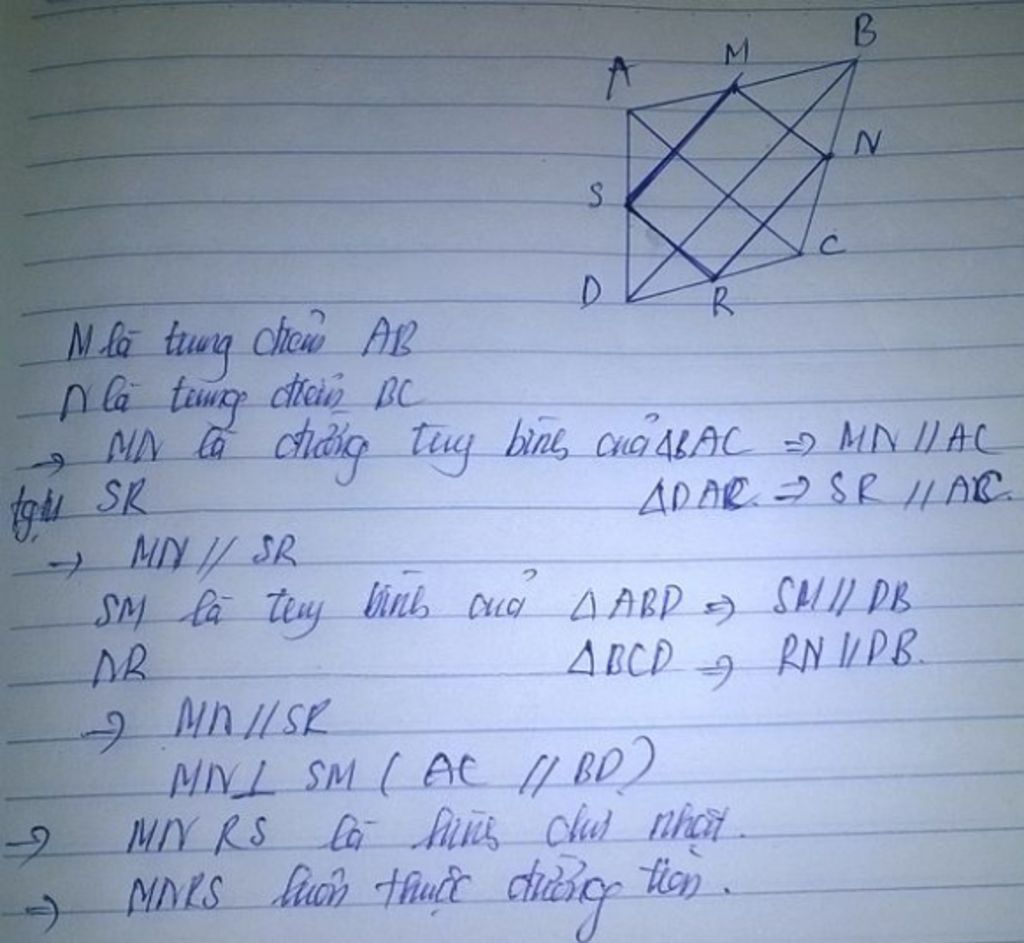 A M B
N
S
C
D R
M là trung điểm AB
N là trung điểm BC
→ MN là đường tuy bình của ΔBAC ⇒ MN // AC
tg tự SR ΔDAC ⇒ SR // AC.
→ MN // SR
SM là tuy bình của ΔABD ⇒ SM // DB
NR ΔBCD ⇒ RN // DB.
⇒ MN // SR
MN ⊥ SM ( AC // BD )
⇒ MN RS là hình chữ nhật.
⇒ MNRS luôn thuộc đường tròn.